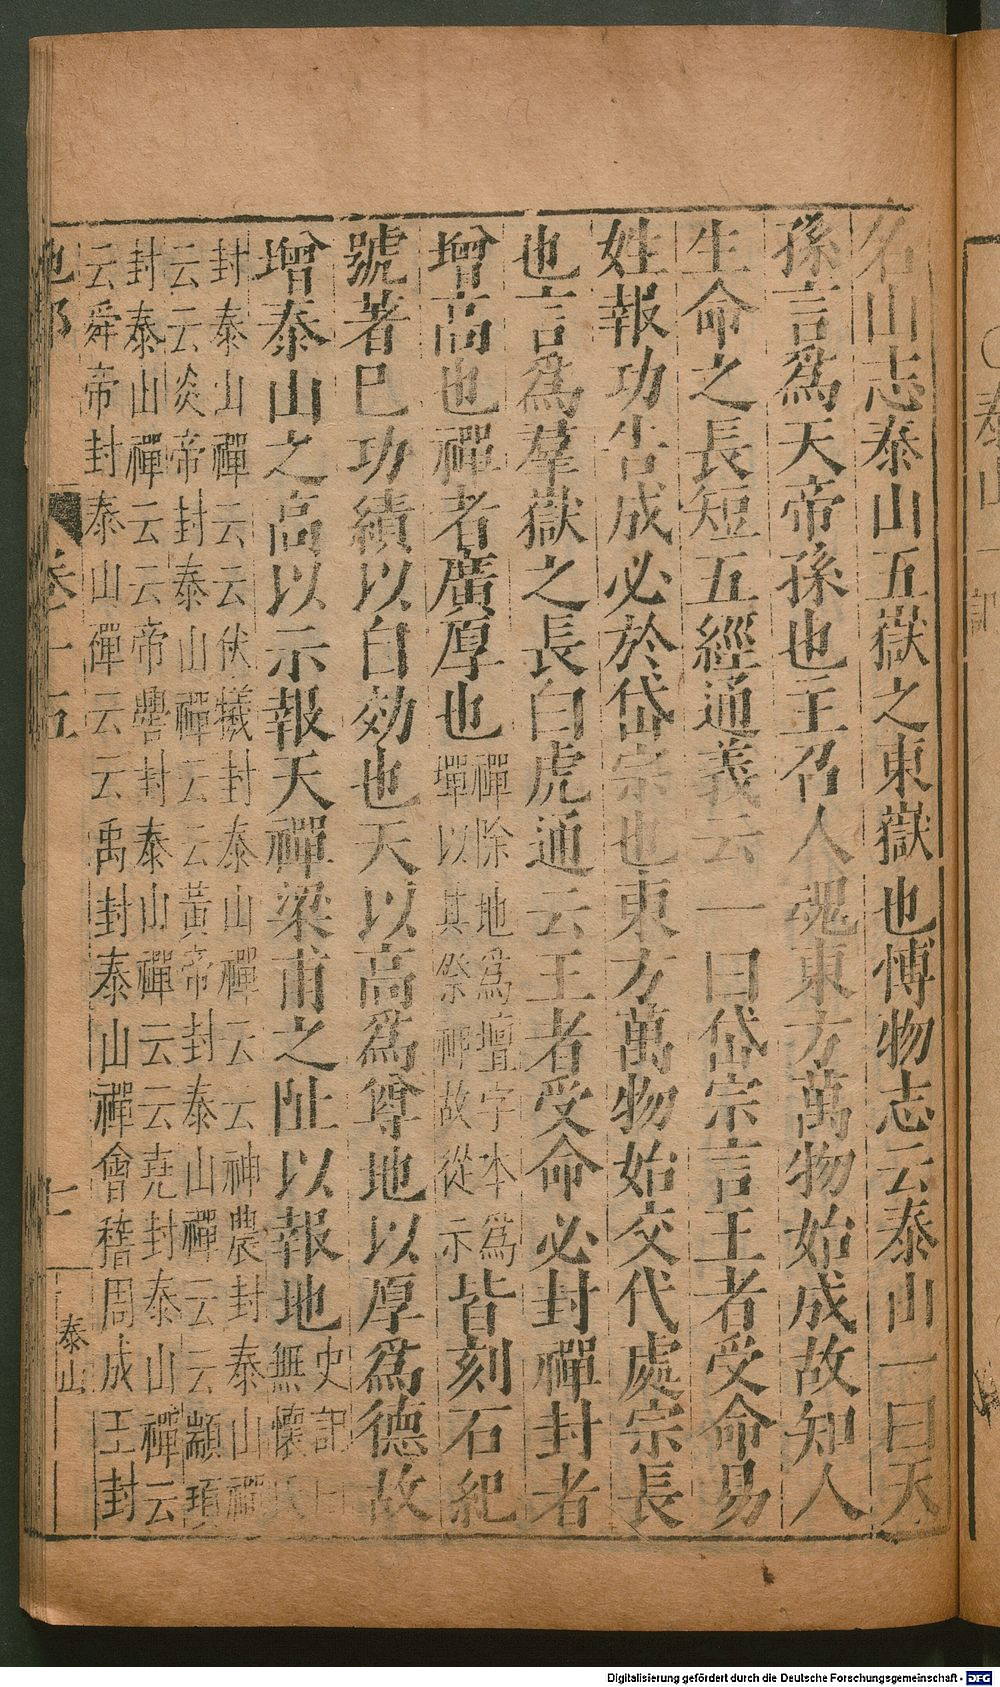 名山志泰山五嶽之東嶽也博物志云泰山一曰天
孫言爲天帝孫也主召人魂東方萬物始成故知人
生命之長短五經通義云一曰岱宗言王者受命易
姓報功告成必於岱宗也東方萬物始交代處宗長
也言爲羣嶽之長白虎通云王者受命必封禪封者
增高也禪者廣厚也禪除地爲壇字本爲
墠以其祭神故從示皆刻石紀
號著已功績以自効也天以高爲尊地以厚爲德故
增泰山之高以示報天禪梁甫之阯以報地史記曰
無懷氏
封泰山禪云云伏犧封泰山禪云云神農封泰山禪
云云炎帝封泰山禪云云黃帝封泰山禪云云顓頊
封泰山禪云云帝嚳封泰山禪云云堯封泰山禪云
云舜帝封泰山禪云云禹封泰山禪會稽周成王封
地部 卷十五 七 泰山
泰山
Digitalisierung gefördert durch die Deutsche Forschungsgemeinschaft - DFG